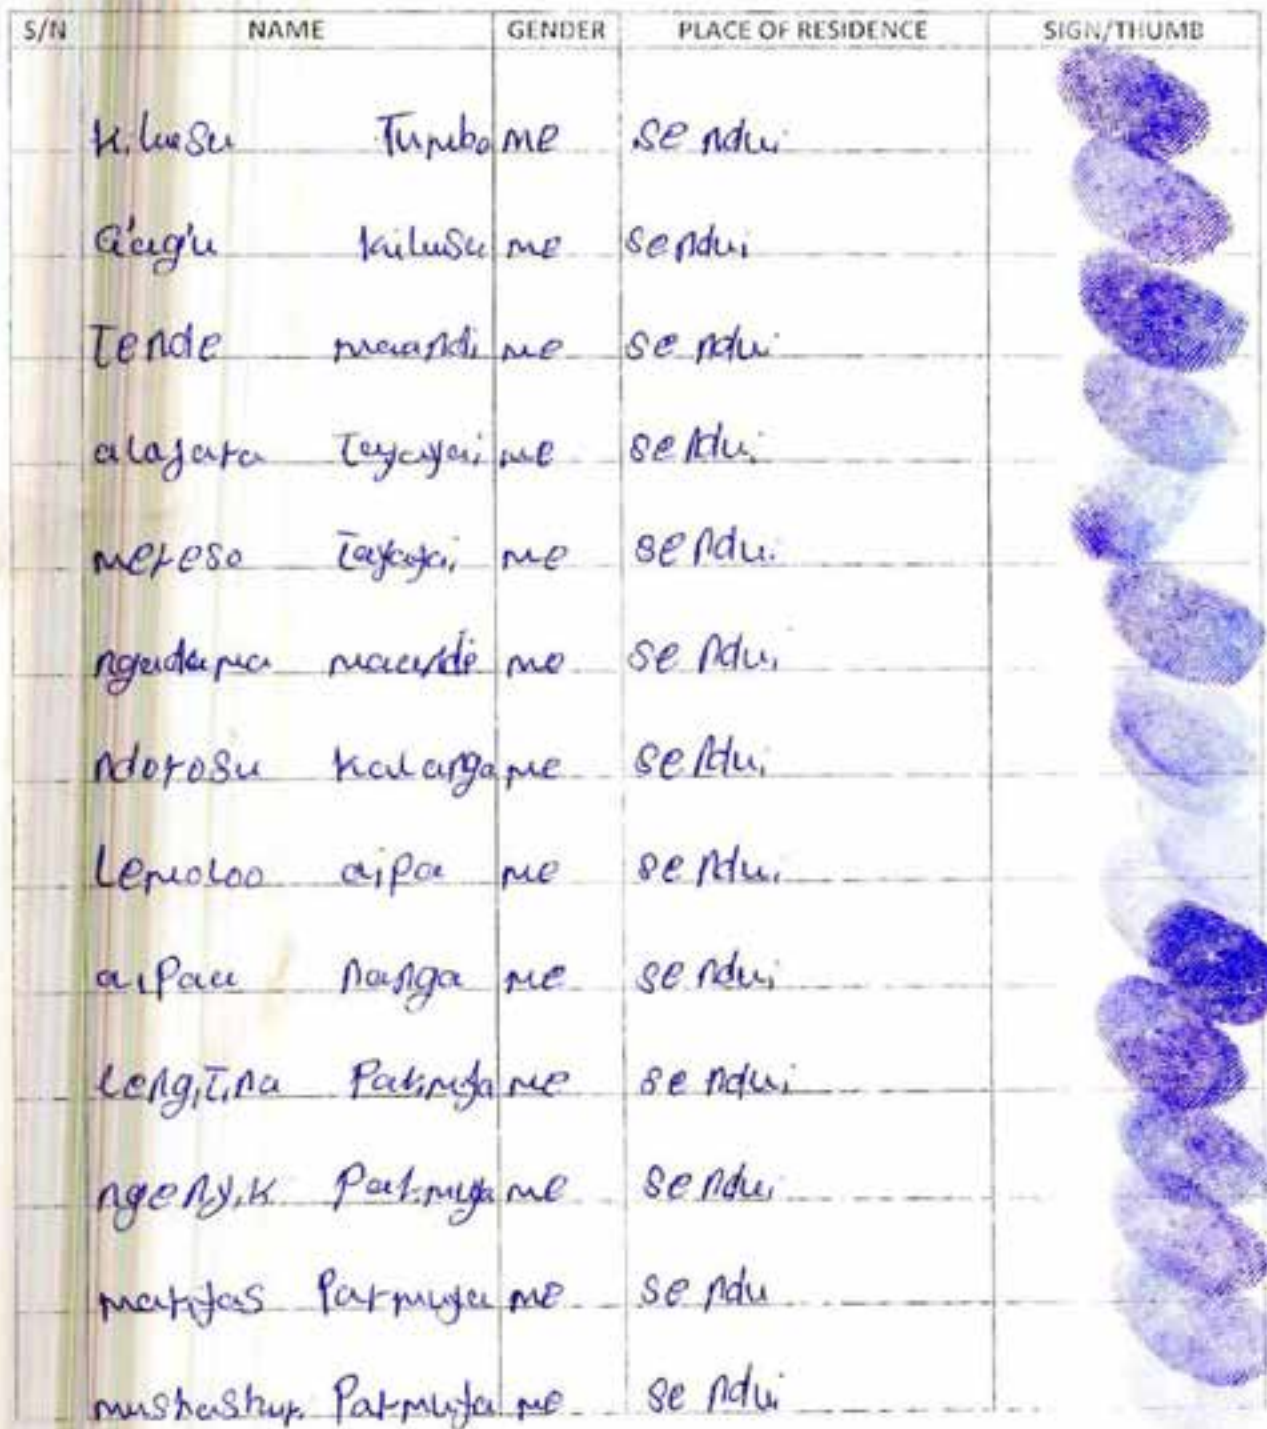 S/N NAME GENDER PLACE OF RESIDENCE SIGN/THUMB
kilusu Tumbo me sendui
kilusu me sendui
Tende maandi me sendui
alajara Tayayai me sendui
mereso Tayayai me sendui
ngadama maande me sendui
ndorosu kalanga me sendui
lemoloo aipa me sendui
aipau nanga me sendui
lengitina Parmuya me sendui
ngenyik Parmuya me sendui
Parmuya me sendu
Parmuya me sendui